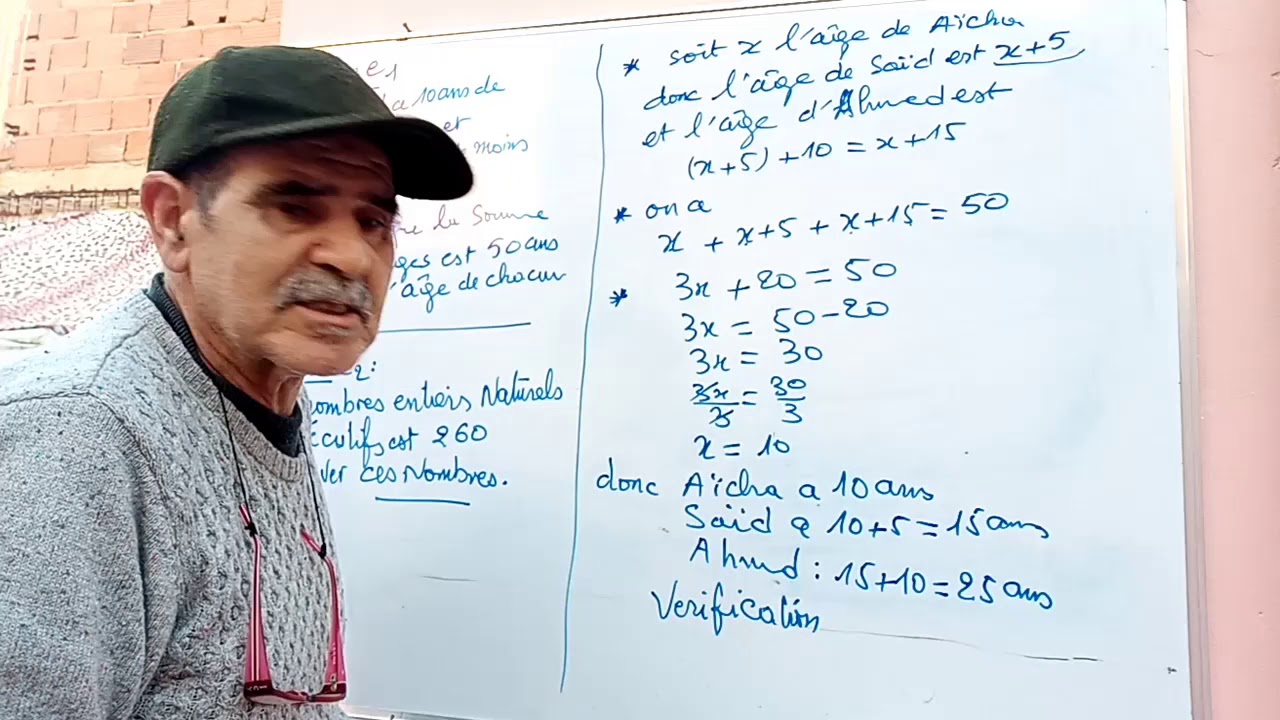 e1
a 10 ans de
et
moins
re la Somme
ges est 50 ans
l'âge de chacun
2:
ombres entiers Naturels
écutifs est 260
ver ces Nombres.
* soit x l'âge de Aïcha
donc l'âge de Saïd est x+5
et l'âge d'Ahmed est
(x+5)+10 = x+15
* on a
x + x+5 + x+15 = 50
* 3x + 20 = 50
3x = 50-20
3x = 30
3x/3 = 30/3
x = 10
donc Aïcha a 10 ans
Saïd a 10+5=15 ans
Ahmd : 15+10=25 ans
Verification